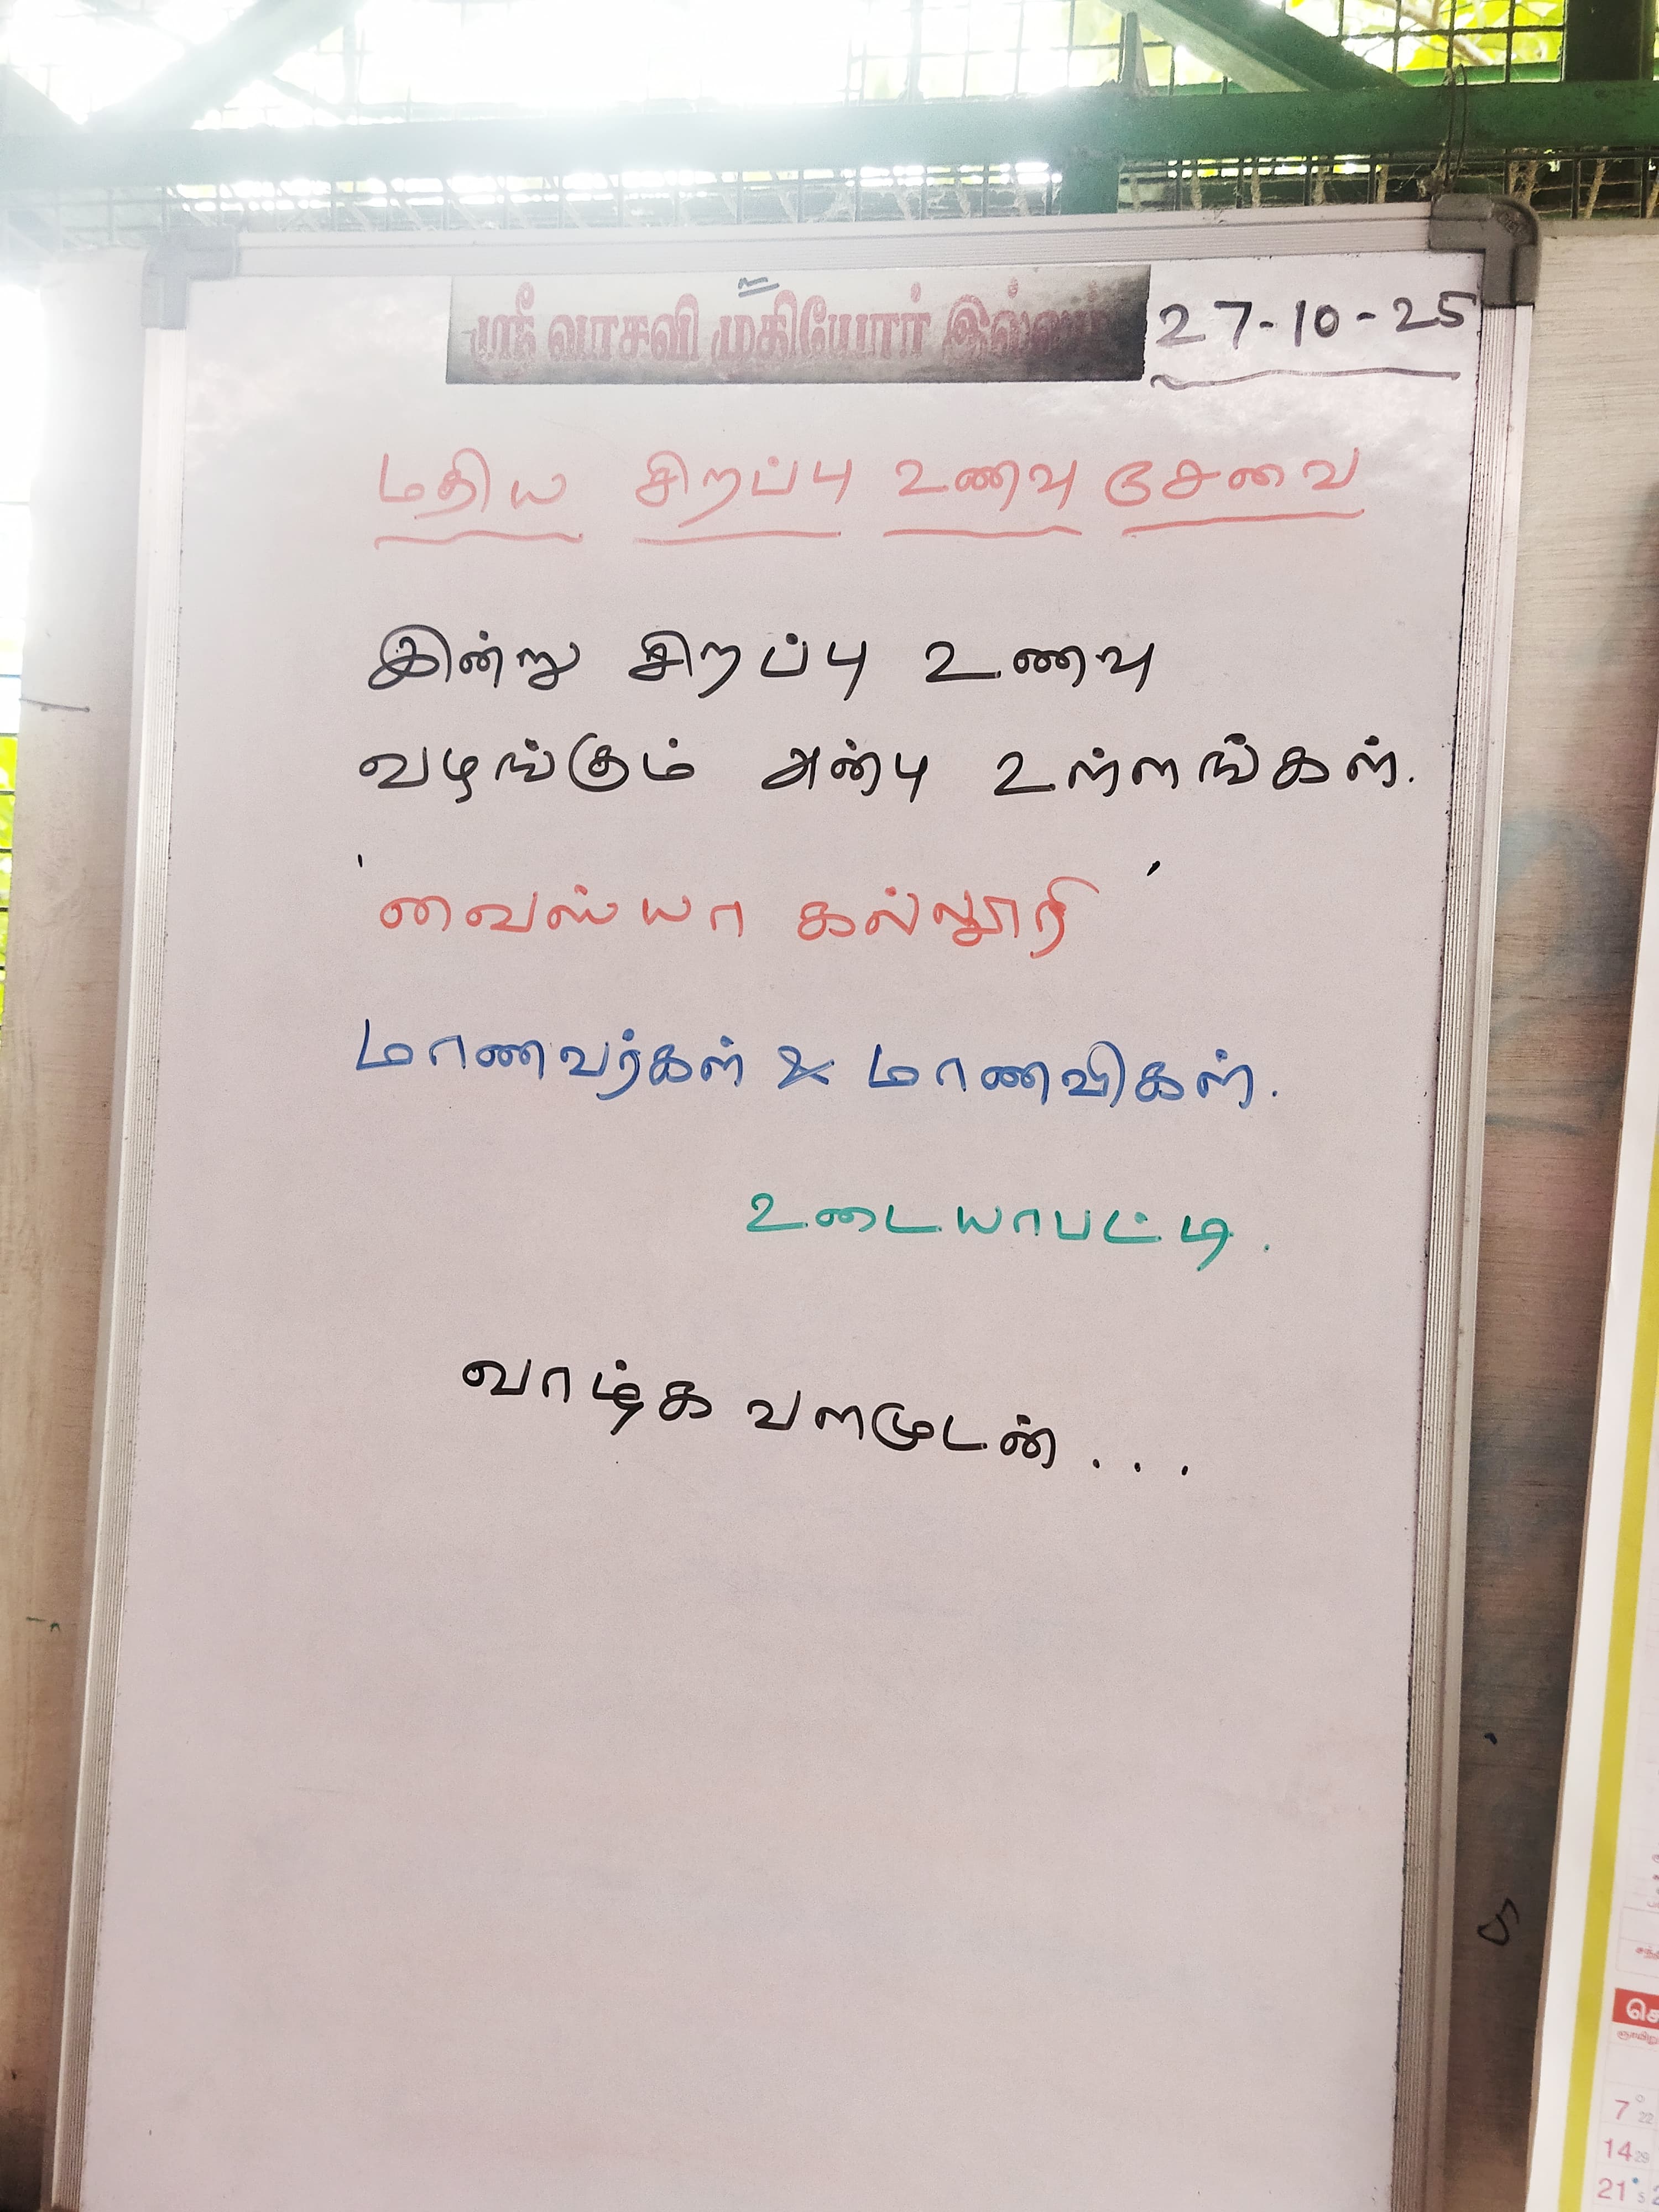 ஸ்ரீ வாசவி முதியோர் இல்லம் 27-10-25
மதிய சிறப்பு உணவு சேவை
இன்று சிறப்பு உணவு
வழங்கும் அன்பு உள்ளங்கள்.
'வைஸ்யா கல்லூரி'
மாணவர்கள் & மாணவிகள்.
உடையாபட்டி.
வாழ்க வளமுடன்...
7 22
14 29
21 5